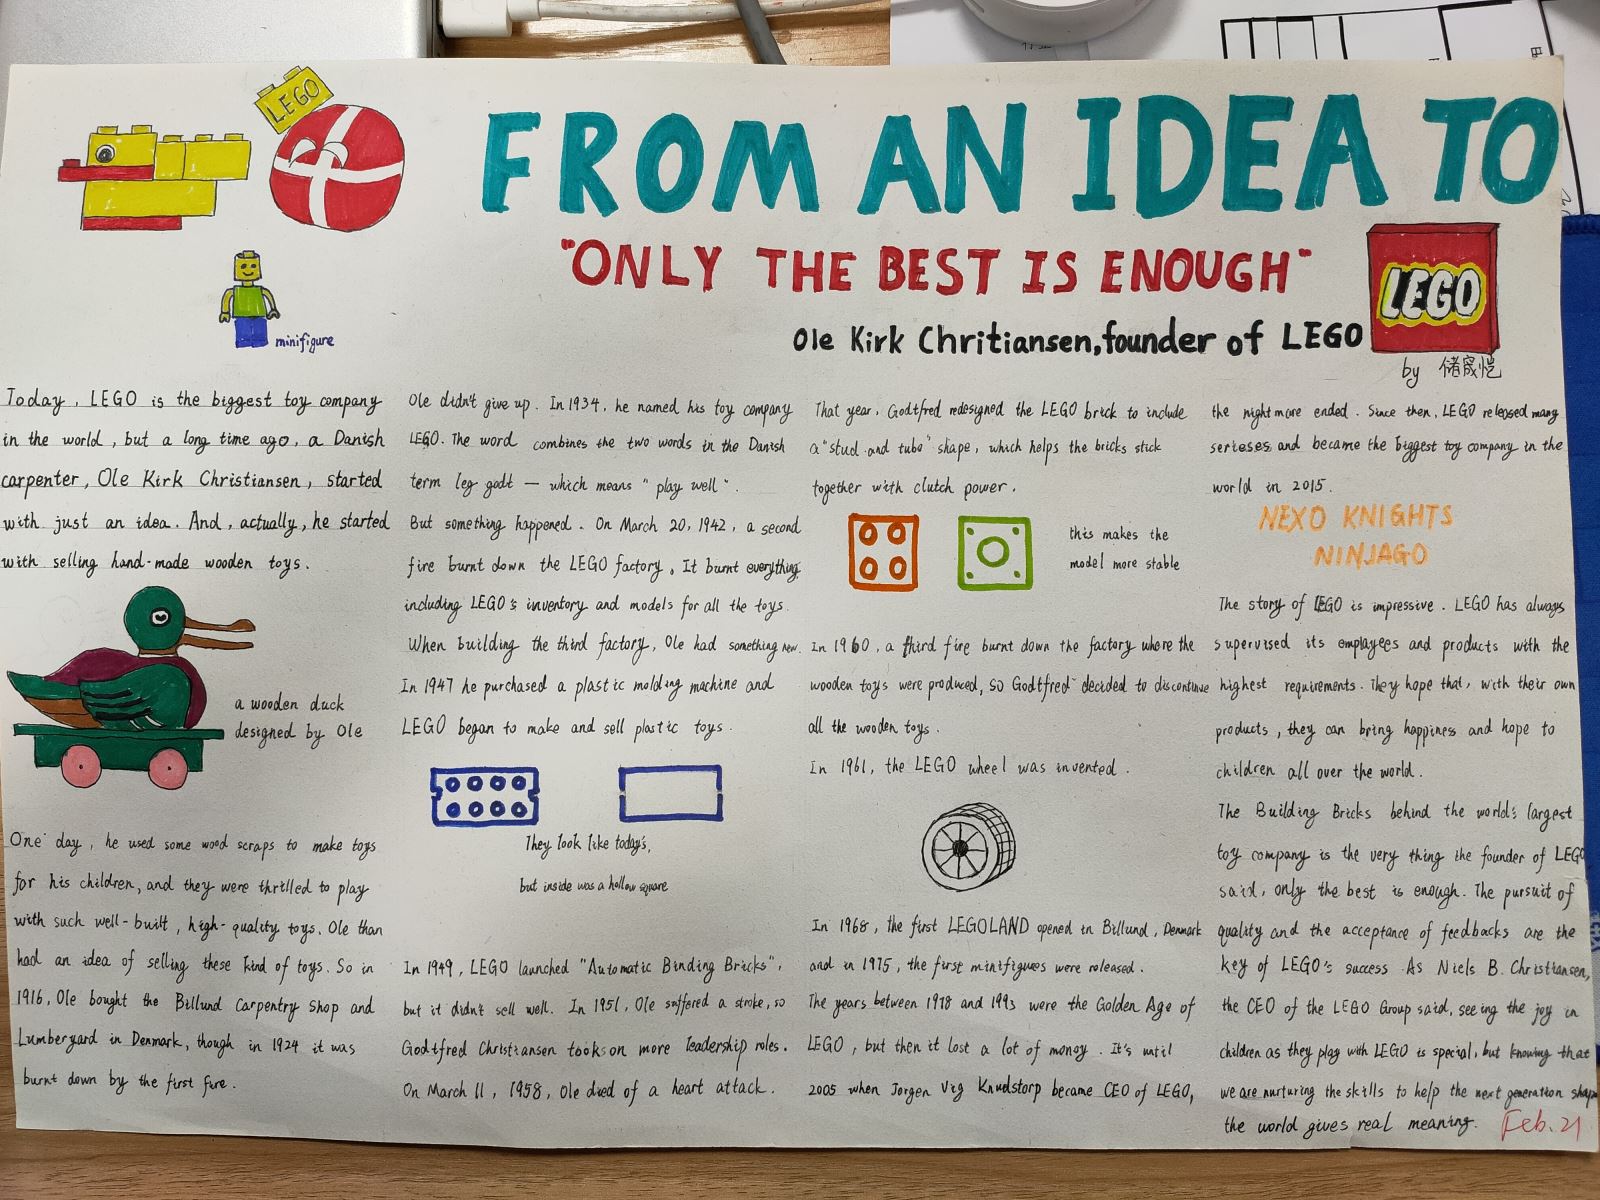 LEGO
FROM AN IDEA TO
"ONLY THE BEST IS ENOUGH"
LEGO
Ole Kirk Chritiansen, founder of LEGO
by 储晟恺
minifigure
Today, LEGO is the biggest toy company
in the world, but a long time ago, a Danish
carpenter, Ole Kirk Christiansen, started
with just an idea. And, actually, he started
with selling hand-made wooden toys.
a wooden duck
designed by Ole
One day, he used some wood scraps to make toys
for his children, and they were thrilled to play
with such well-built, high-quality toys. Ole than
had an idea of selling these kind of toys. So in
1916, Ole bought the Billund Carpentry Shop and
Lumberyard in Denmark, though in 1924 it was
burnt down by the first fire.
Ole didn't give up. In 1934, he named his toy company
LEGO. The word combines the two words in the Danish
term leg godt — which means "play well".
But something happened. On March 20, 1942, a second
fire burnt down the LEGO factory. It burnt everything,
including LEGO's inventory and models for all the toys.
When building the third factory, Ole had something new.
In 1947 he purchased a plastic molding machine and
LEGO began to make and sell plastic toys.
They look like today's,
but inside was a hollow square
In 1949, LEGO launched "Automatic Binding Bricks",
but it didn't sell well. In 1951, Ole suffered a stroke, so
Godtfred Christiansen tooks on more leadership roles.
On March 11, 1958, Ole died of a heart attack.
That year, Godtfred redesigned the LEGO brick to include
a "stud and tube" shape, which helps the bricks stick
together with clutch power.
this makes the
model more stable
In 1960, a third fire burnt down the factory where the
wooden toys were produced, so Godtfred decided to discontinue
all the wooden toys.
In 1961, the LEGO wheel was invented.
In 1968, the first LEGOLAND opened in Billund, Denmark
and in 1975, the first minifigures were released.
The years between 1978 and 1993 were the Golden Age of
LEGO, but then it lost a lot of money. It's until
2005 when Jorgen Vig Knudstorp became CEO of LEGO,
the nightmare ended. Since then, LEGO released many
serieses and became the biggest toy company in the
world in 2015.
NEXO KNIGHTS
NINJAGO
The story of LEGO is impressive. LEGO has always
supervised its employees and products with the
highest requirements. They hope that, with their own
products, they can bring happiness and hope to
children all over the world.
The Building Bricks behind the world's largest
toy company is the very thing the founder of LEGO
said, only the best is enough. The pursuit of
quality and the acceptance of feedbacks are the
key of LEGO's success. As Niels B. Christiansen,
the CEO of the LEGO Group said, seeing the joy in
children as they play with LEGO is special, but knowing that
we are nurturing the skills to help the next generation shape
the world gives real meaning.
Feb. 21